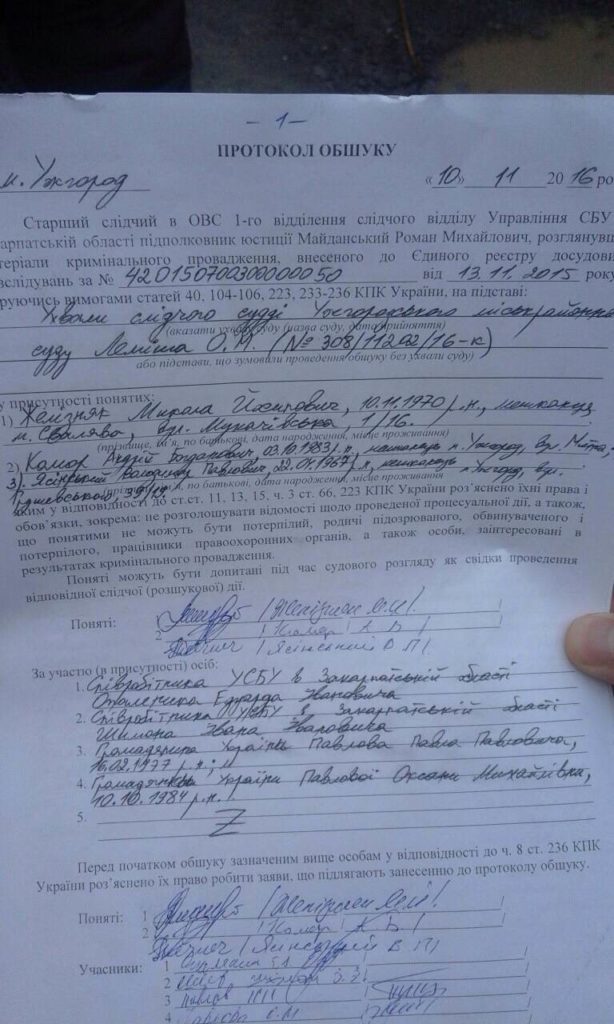 - 1 -
ПРОТОКОЛ ОБШУКУ
м. Ужгород «10» 11 2016 ро
Старший слідчий в ОВС 1-го відділення слідчого відділу Управління СБУ
арпатській області підполковник юстиції Майданський Роман Михайлович, розглянувш
теріали кримінального провадження, внесеного до Єдиного реєстру досудови
зслідувань за № 42015070030000050 від 13.11.2015 року
руючись вимогами статей 40, 104-106, 223, 233-236 КПК України, на підставі:
Ухвали слідчого судді Ужгородського міськрайонно
(вказати ухвалу суду (назва суду, дата прийняття)
суду Леміша О.М. (№ 308/11202/16-к)
або підстави, що зумовили проведення обшуку без ухвали суду)
у присутності понятих:
1) Желізняк Микола Йосипович, 10.11.1970 р.н., мешканець
м. Свалява, вул. Мукачівська, 1/16.
(прізвище, ім'я, по батькові, дата народження, місце проживання)
2) Комор Андрій Богданович, 03.10.1983 р.н., мешканець м. Ужгород, вул.
3) Ясінський Володимир Павлович, 22.01.1967 р.н., мешканець м. Ужгород, вул.
прізвище, ім'я, по батькові, дата народження, місце проживання
яким у відповідності до ст.ст. 11, 13, 15, ч. 3 ст. 66, 223 КПК України роз'яснено їхні права і
обов'язки, зокрема: не розголошувати відомості щодо проведеної процесуальної дії, а також,
що понятими не можуть бути потерпілий, родичі підозрюваного, обвинуваченого і
потерпілого, працівники правоохоронних органів, а також особи, заінтересовані в
результатах кримінального провадження.
Поняті можуть бути допитані під час судового розгляду як свідки проведення
відповідної слідчої (розшукової) дії.
Поняті: 1
2 Комор А Б
Ясінський В П
За участю (в присутності) осіб:
1. Співробітника УСБУ в Закарпатській області
Едуарда Івановича
2. Співробітника УСБУ в Закарпатській області
Шимона Івана Івановича
3. Громадянина України Павлова Павла Павловича,
16.02.1977 р.н.;
4. Громадянки України Павлової Оксани Михайлівни,
10.10.1984 р.н.
5. Z
Перед початком обшуку зазначеним вище особам у відповідності до ч. 8 ст. 236 КПК
України роз'яснено їх право робити заяви, що підлягають занесенню до протоколу обшуку.
Поняті: 1
2 Комор А Б
Ясінський В П
Учасники: 1
2
3
4